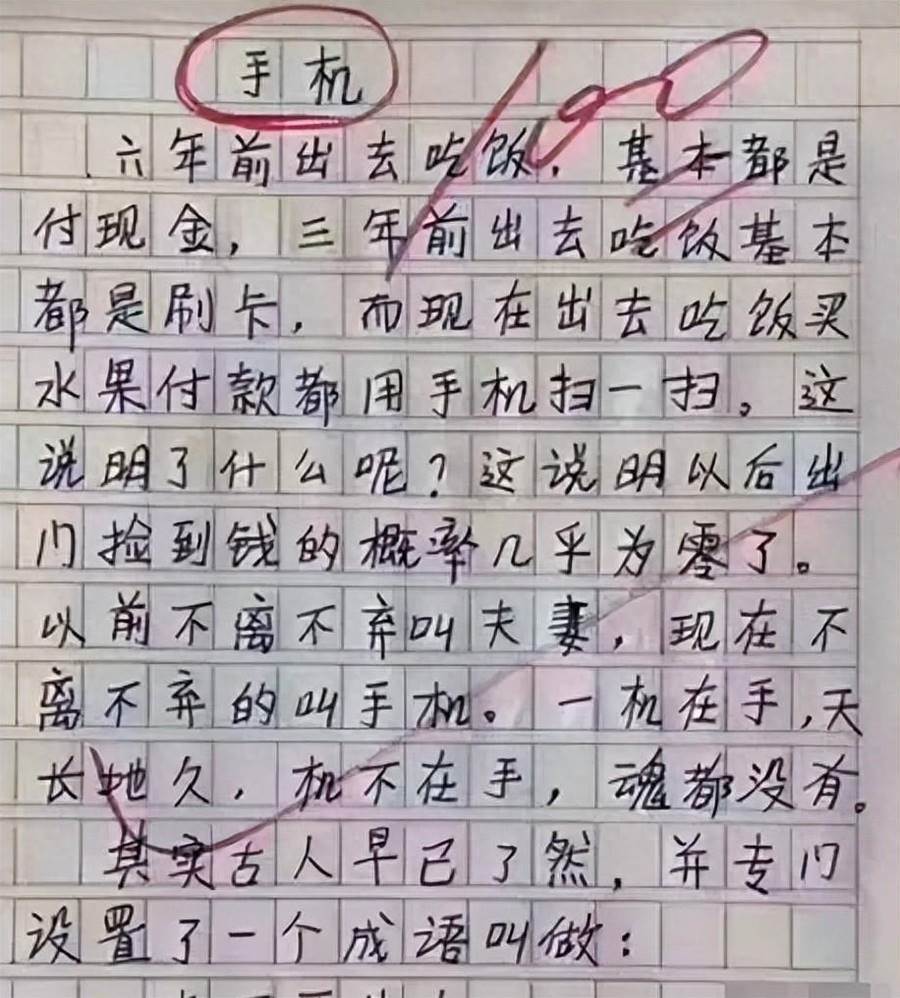 手机
100
六年前出去吃饭，基本都是
付现金，三年前出去吃饭基本
都是刷卡，而现在出去吃饭买
水果付款都用手机扫一扫。这
说明了什么呢？这说明以后出
门捡到钱的概率几乎为零了。
以前不离不弃叫夫妻，现在不
离不弃的叫手机。一机在手，天
长地久，机不在手，魂都没有。
其实古人早已了然，并专门
设置了一个成语叫做：